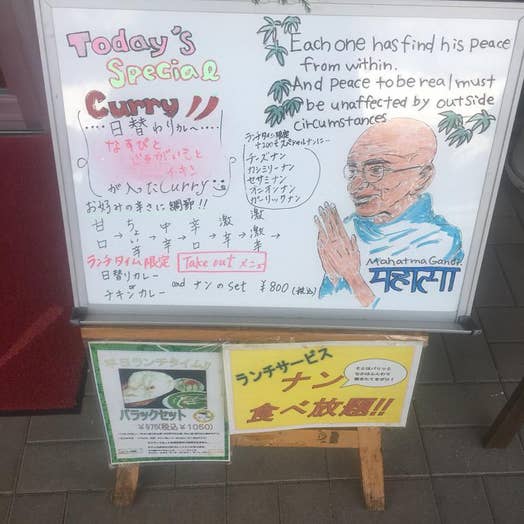 Today's
Special
Curry
日替わりカレー
なすびと
じゃがいもと
チキン
が入ったCurry
お好みの辛さに調節!!
甘口→ちょい辛→中辛→辛口→激辛→激激辛
ランチタイム限定 Take out メニュー
日替りカレー
or
チキンカレー
and ナンのset ¥800(税込)
ランチタイム限定
+200でスペシャルナンに
チーズナン
カシミリーナン
セサミナン
オニオンナン
ガーリックナン
Each one has find his peace
from within.
And peace to be real must
be unaffected by outside
circumstances
Mahatma Gandhi
महात्मा
平日ランチタイム
パラックセット
¥975(税込¥1050)
ランチサービス
ナン
食べ放題!!
そとはパリッと
なかはふんわり
焼きたてをぜひ!